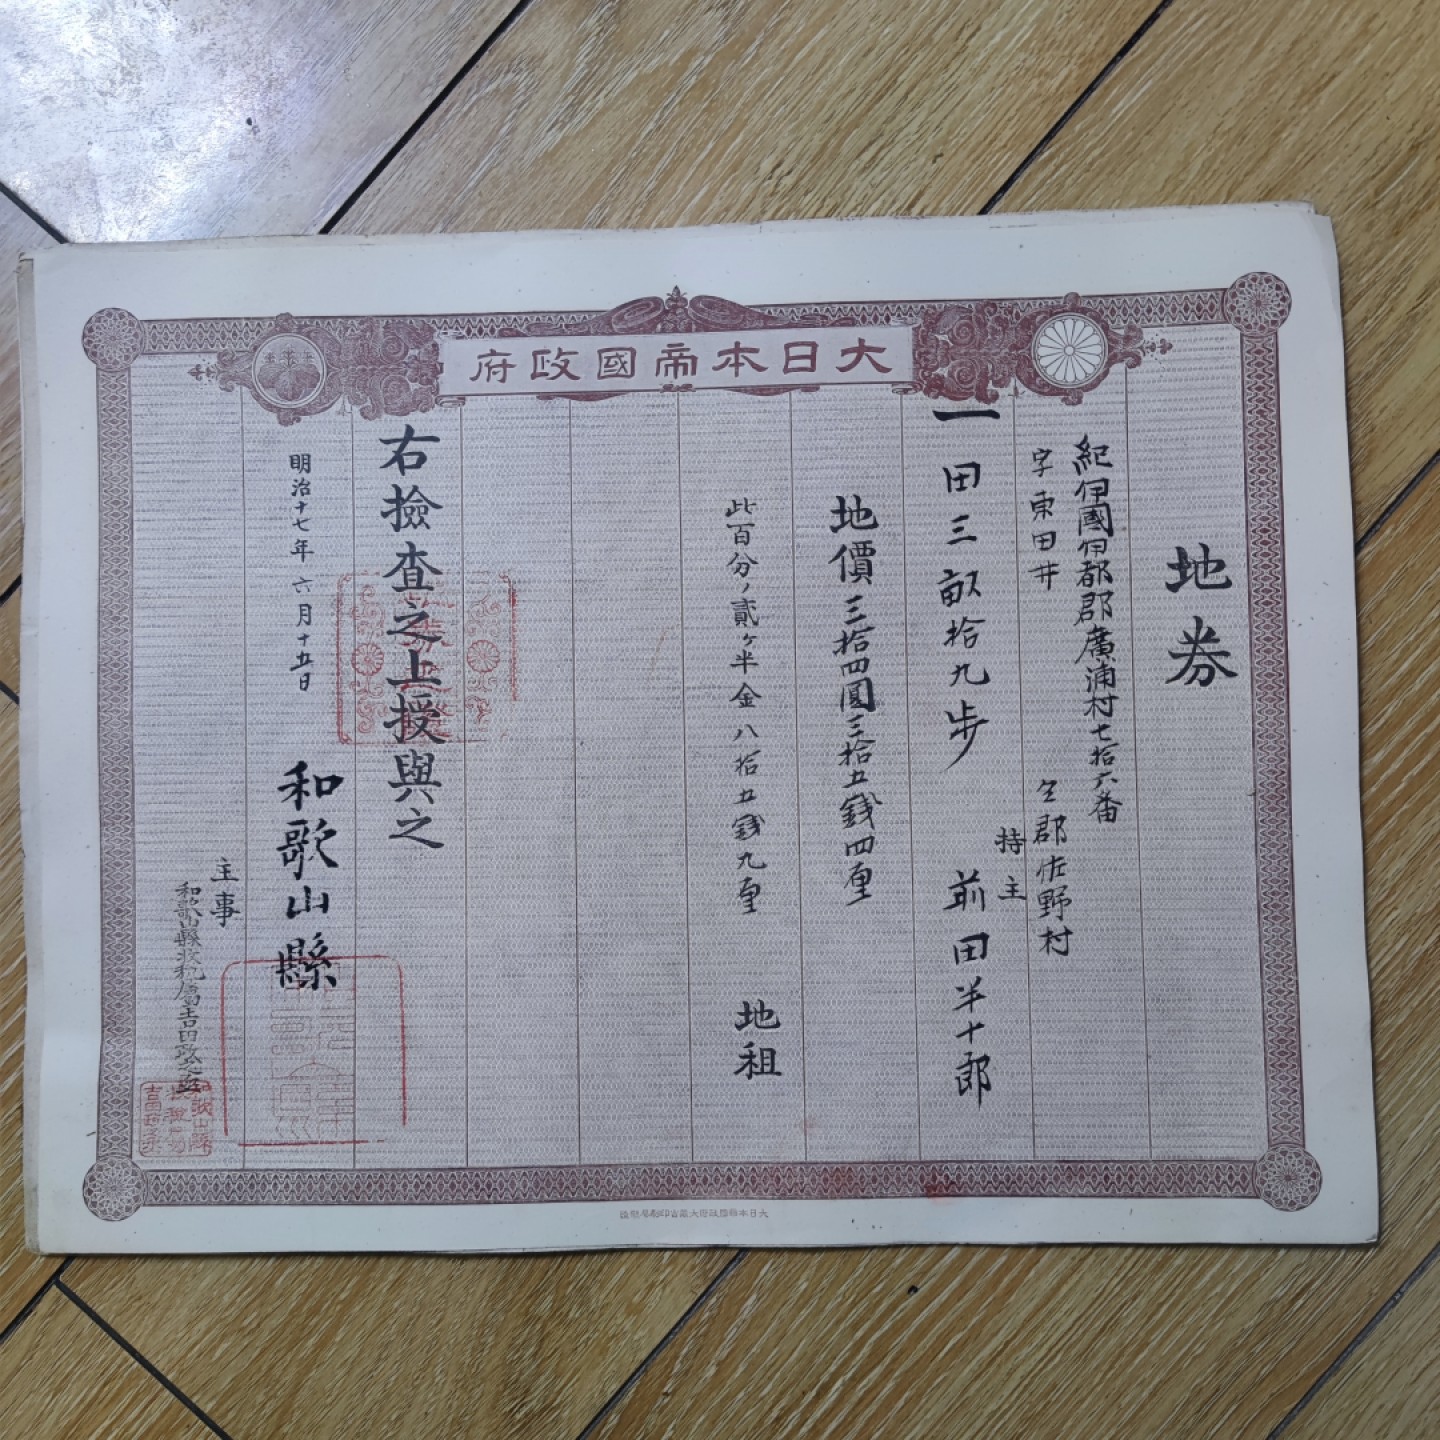 大日本帝國政府
地券
紀伊國伊都郡廣浦村七拾六番
字東田井
仝郡佐野村
持主
一田三畝拾九歩
前田半十郎
地價三拾四圓三拾五錢四厘
此百分ノ貳ケ半金八拾五錢九厘
地租
右撿査之上授與之
明治十七年六月十五日
和歌山縣
主事
和歌山縣收税属吉田
大日本帝國政府大藏省印刷局製造